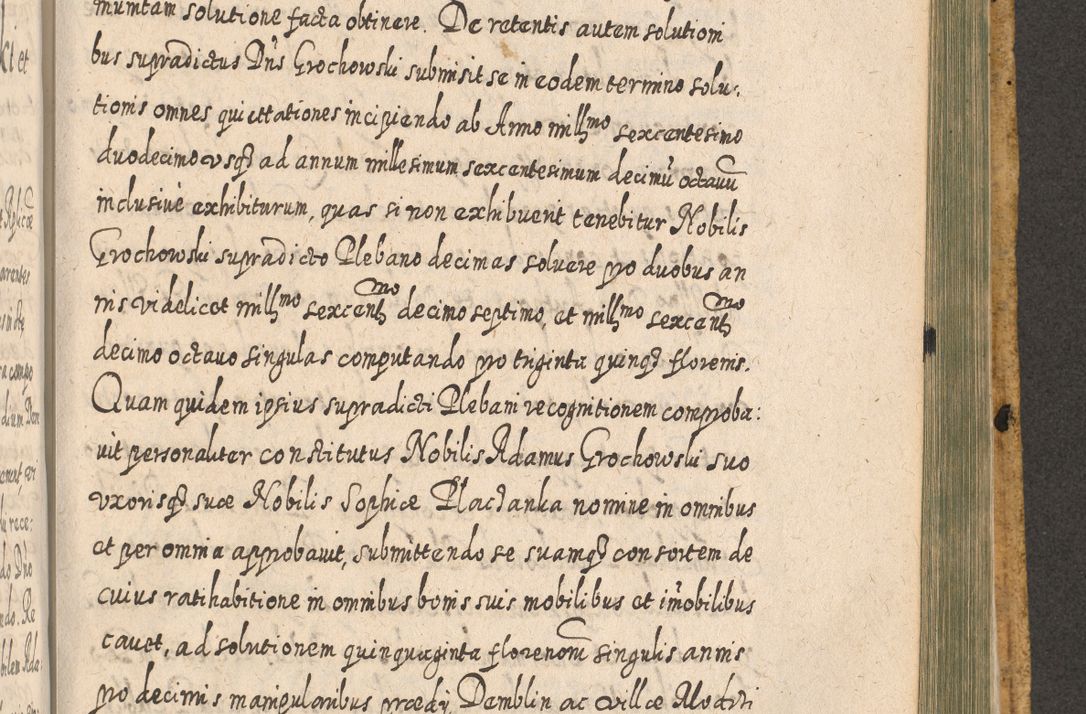 mumtam solutione facta obtinere. De retentis autem solutioni
bus supradictus Dns Grochowski submisit se in eodem termino solu:
tionis omnes quiettationes incipiendo ab Anno millmo sexcentesimo
duodecimo usq3 ad annum millesimum sexcentesimum decimū octauū
inclusiuè exhibiturum, quas si non exhibuerit tenebitur Nobilis
Grochowski supradicto Plebano decimas soluere pro duobus an
nis videlicet millmo sexcentmo decimo septimo, et millmo sexcentmo
decimo octauo singulas computando pro triginta quinq3 florenis.
Quam quidem ipsius supradicti Plebani recognitionem comproba:
uit personaliter constitutus Nobilis Adamus Grochowski suo
vxorisq3 suæ Nobilis Sophiæ Plactanka nomine in omnibus
et per omnia approbauit, submittendo se suamq3 consortem de
cuius ratihabitione in omnibus bonis suis mobilibus et im̄obilibus
cauet, ad solutionem quinquaginta florenom singulis annis
pro decimis manipularibus prædij Demblin ac villæ